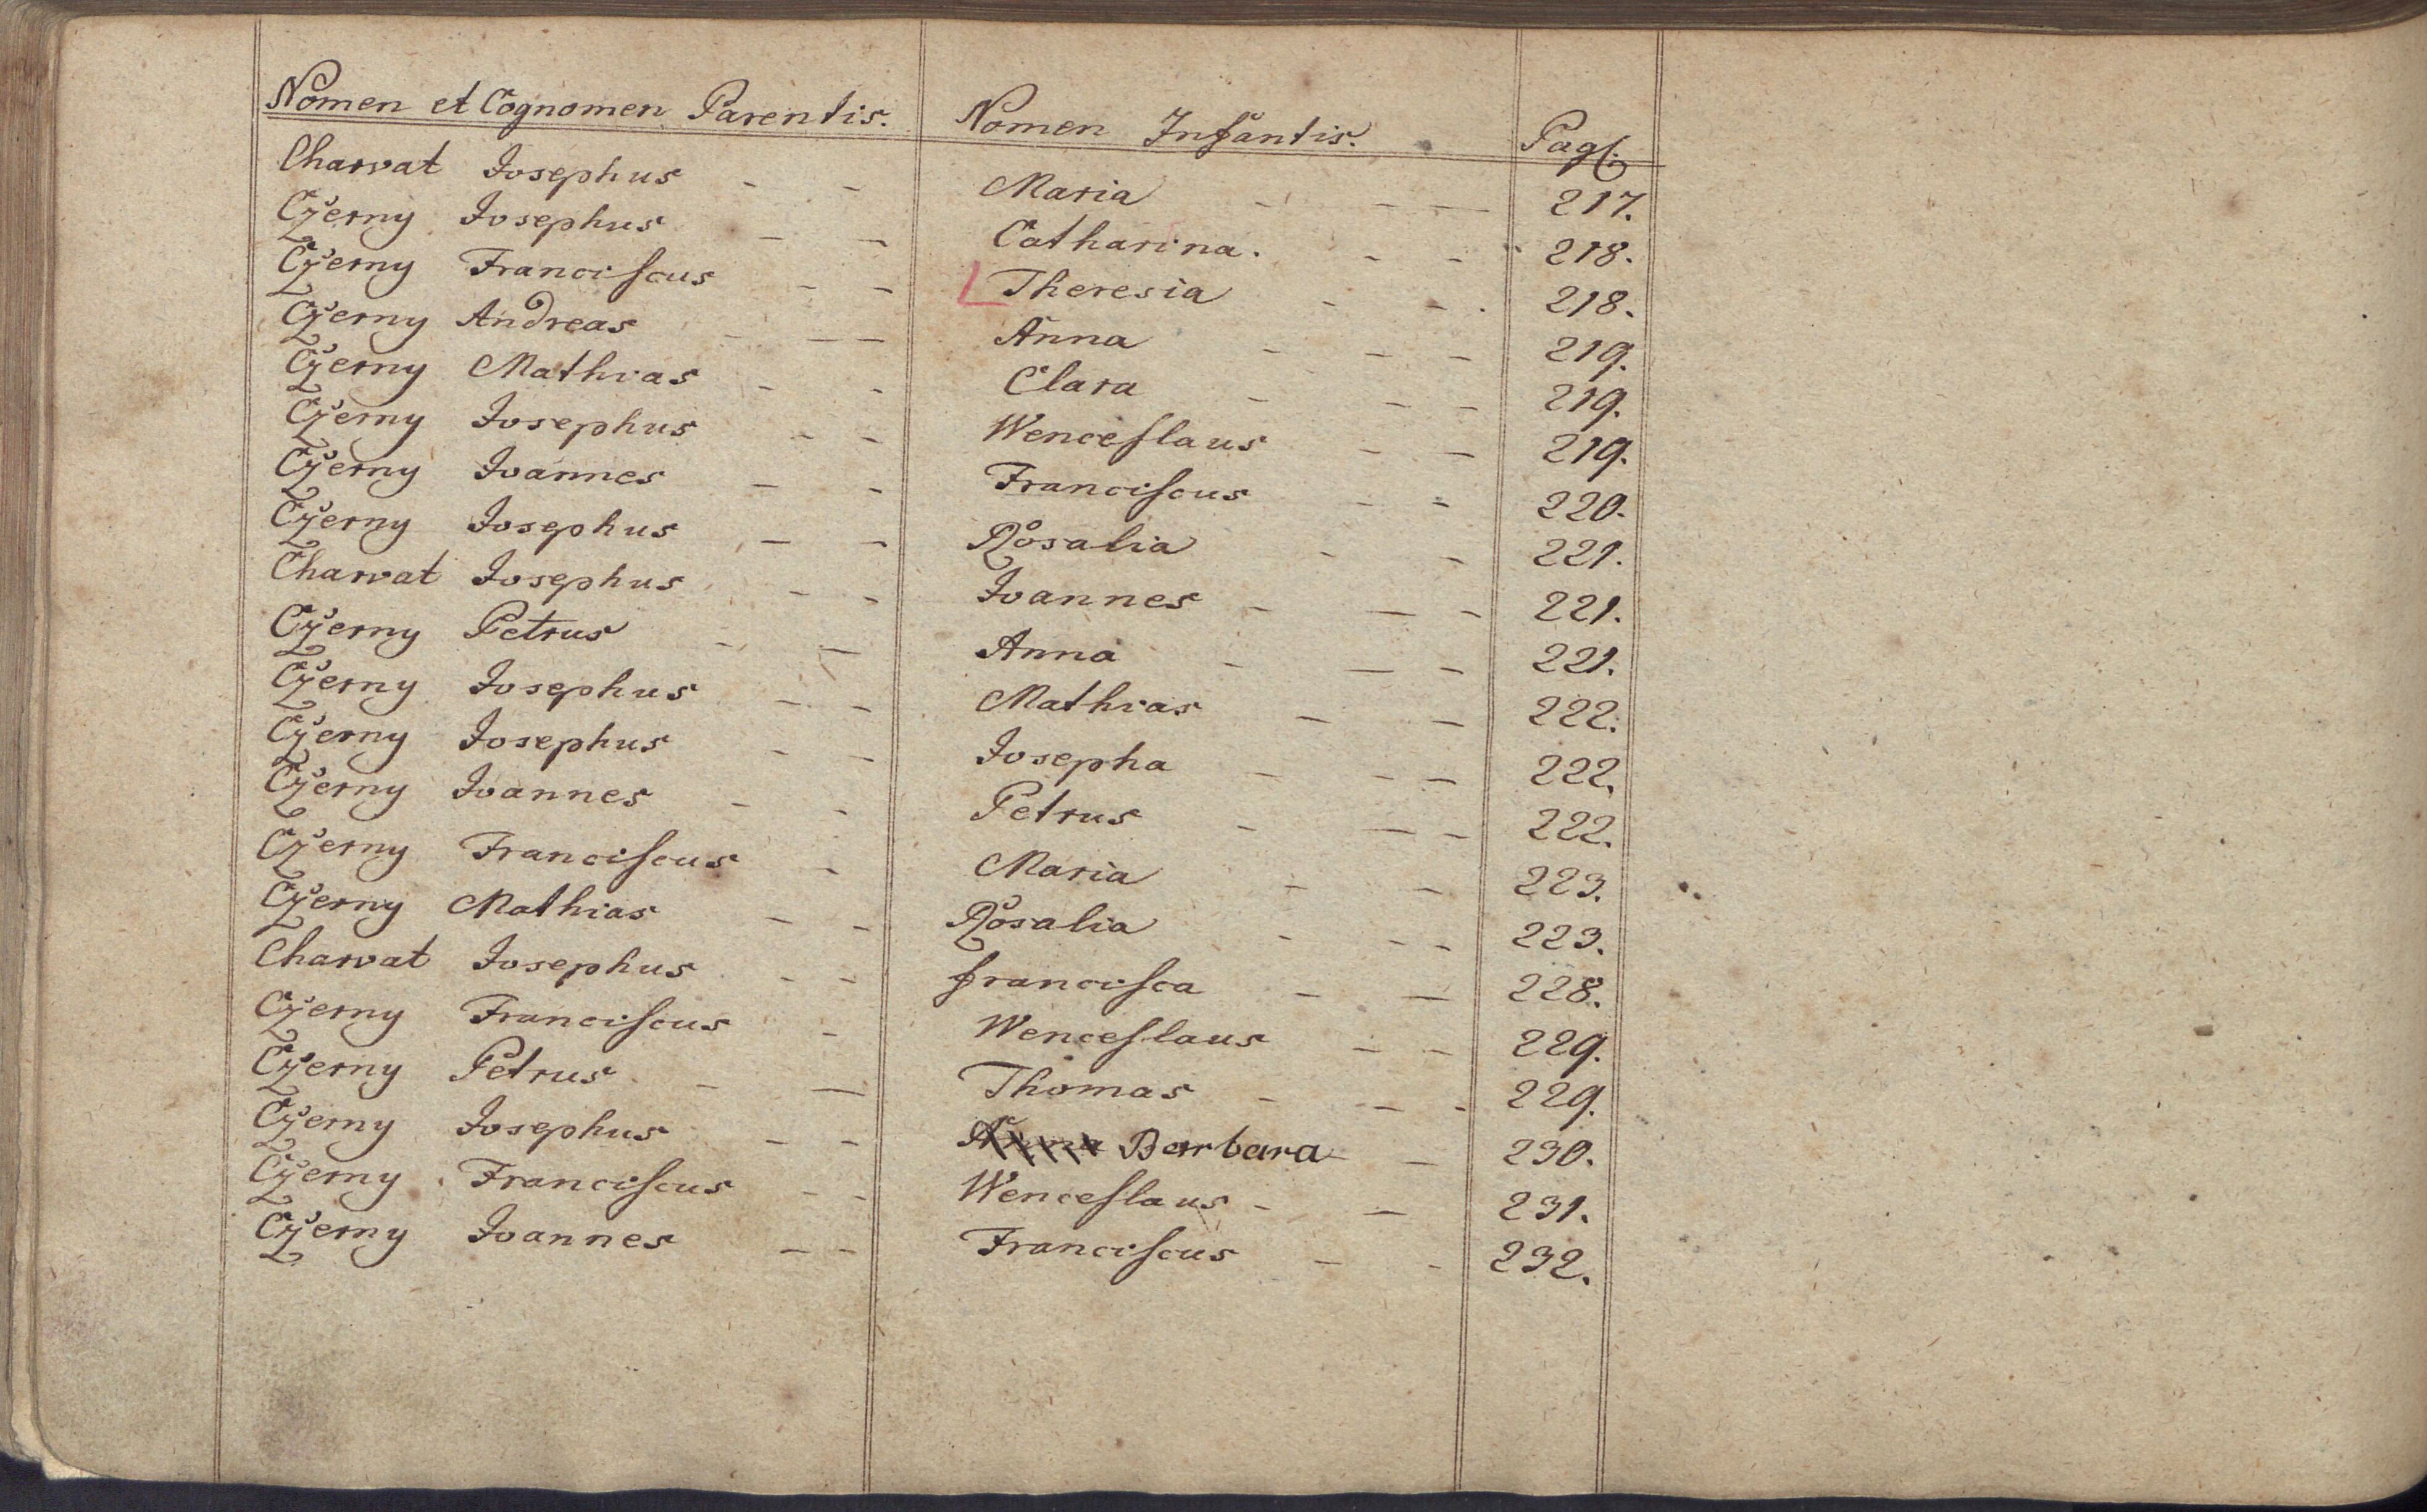 Nomen et Cognomen Parentis. Nomen Infantis. Pag.
Charvat Josephus - - Maria - - - 217.
Czerny Josephus - - Catharina. - - 218.
Czerny Franciscus - - Theresia - - 218.
Czerny Andreas - - - Anna - - - 219.
Czerny Mathias - - Clara - - - 219.
Czerny Josephus - - Wenceslaus - - 219.
Czerny Joannes - - Franciscus - - 220.
Czerny Josephus - - Rosalia - - 221.
Charvat Josephus - - Joannes - - - 221.
Czerny Petrus - - Anna - - - 221.
Czerny Josephus - - Mathias - - 222.
Czerny Josephus - - Josepha - - - 222.
Czerny Joannes - - Petrus - - - 222.
Czerny Franciscus - Maria - - 223.
Czerny Mathias - - Rosalia - - - 223.
Charvat Josephus - - francisca - - 228.
Czerny Franciscus - Wenceslaus - - 229.
Czerny Petrus - - Thomas - - - 229.
Czerny Josephus - - Barbara - - 230.
Czerny Franciscus - - Wenceslaus - - 231.
Czerny Joannes - - Franciscus - - 232.